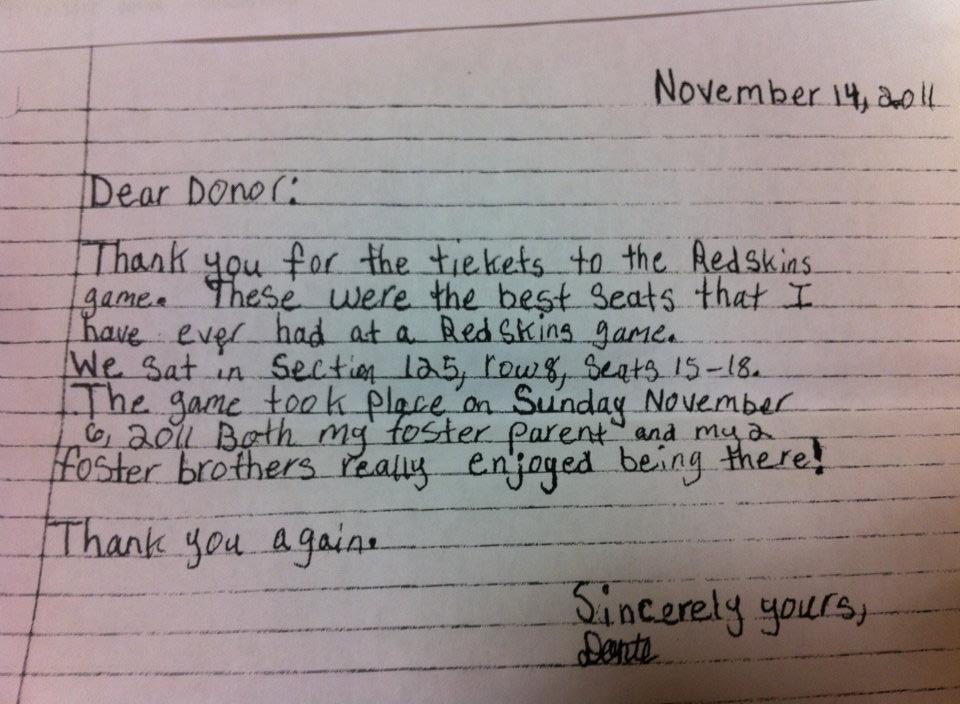 November 14, 2011
Dear Donor:
Thank you for the tickets to the Redskins
game. These were the best seats that I
have ever had at a Redskins game.
We sat in Section 125, row 8, Seats 15-18.
The game took place on Sunday November
6, 2011 Both my foster parent and my 2
foster brothers really enjoyed being there!
Thank you again.
Sincerely yours,
Dante